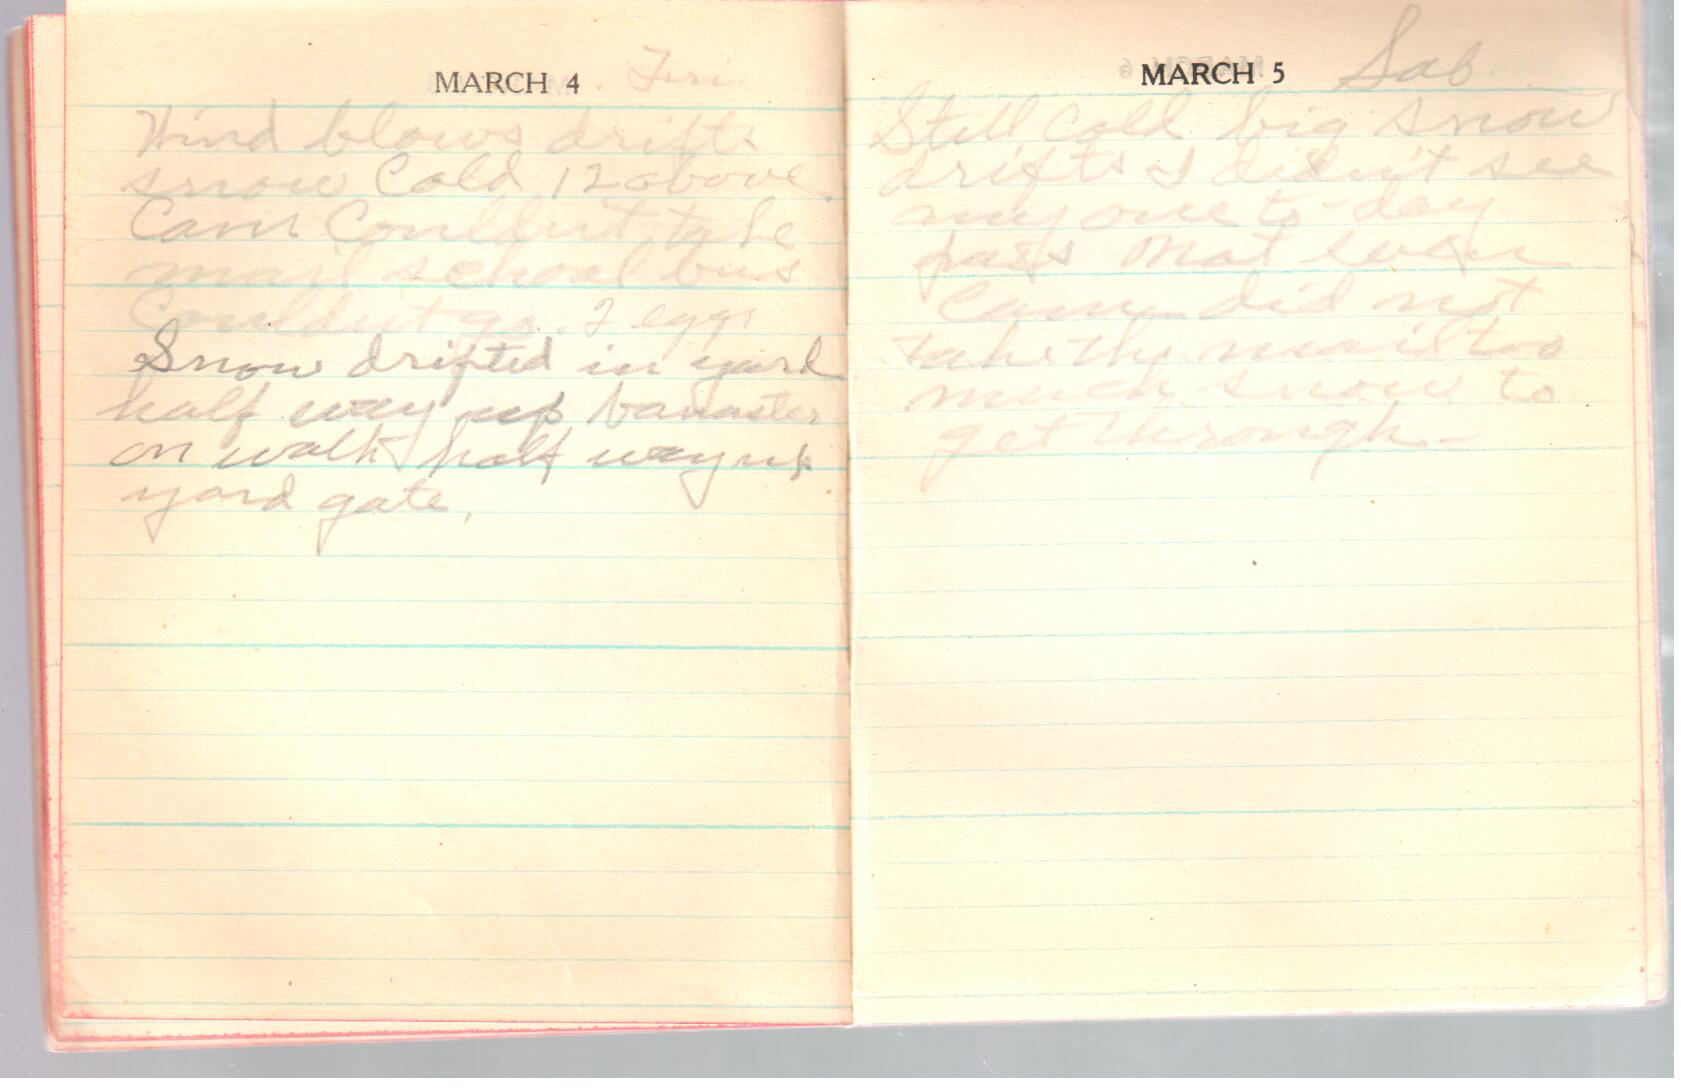 MARCH 4 Fri.
Wind blows drifts
snow Cold 12 above
Cam Couldnt take
mail school bus
Couldnt go. 2 eggs
Snow drifted in yard
half way up banaster
on walk half way up
yard gate.
MARCH 5 Sab
Still Cold big snow
drifts I didn't see
any one to-day
pass not even
Cam did not
take the mail too
much snow to
get through-